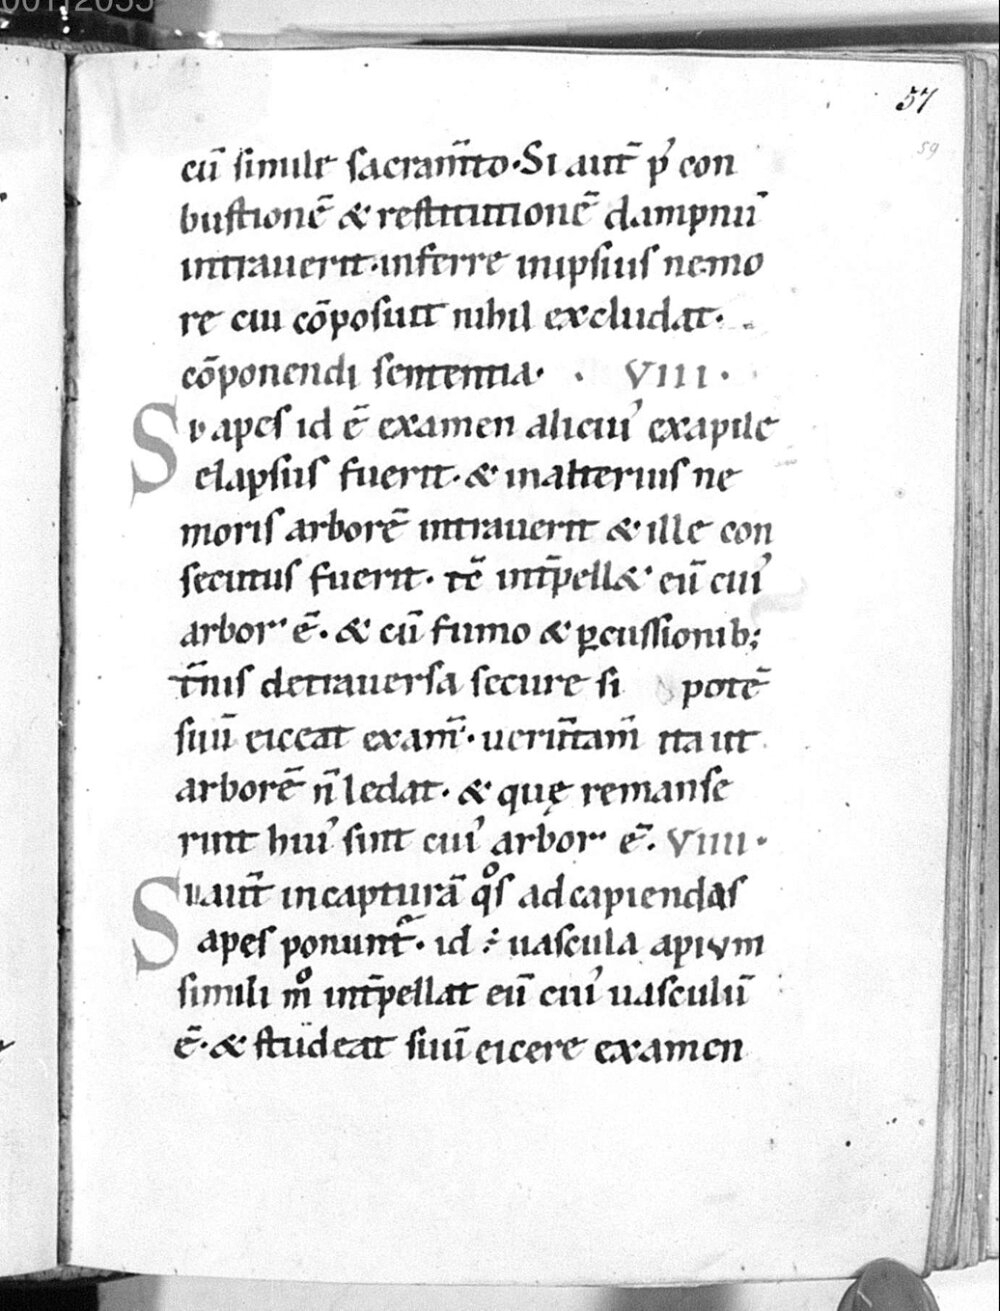 57
59
cū simile sacram̄to. Si aut̄ p' con
bustionē & restitutionē dampnū
intrauerit. inferre inipsius nemo
re cui cōposuit nihil excludat.
cōponendi sententia. VIII.
Si apes id ē examen alicui' exapile
elapsus fuerit. & inalterius ne
moris arborē intrauerit & ille con
secutus fuerit. tē int̄pell& eū cui'
arbor ē. & cū fumo & ꝑcussionib;
t̄nis detrauersa secure si potē
suū eiceat exam̄. uerūtam̄ ita ut
arborē n̄ ledat. & quę remanse
rint hui' sint cui' arbor ē. VIIII.
Si aut̄ incapturā qͦs adcapiendas
apes ponunt̄. id ÷ uascula apium
simili mͦ int̄pellat eū cui' uasculū
ē. & studeat suū eicere examen